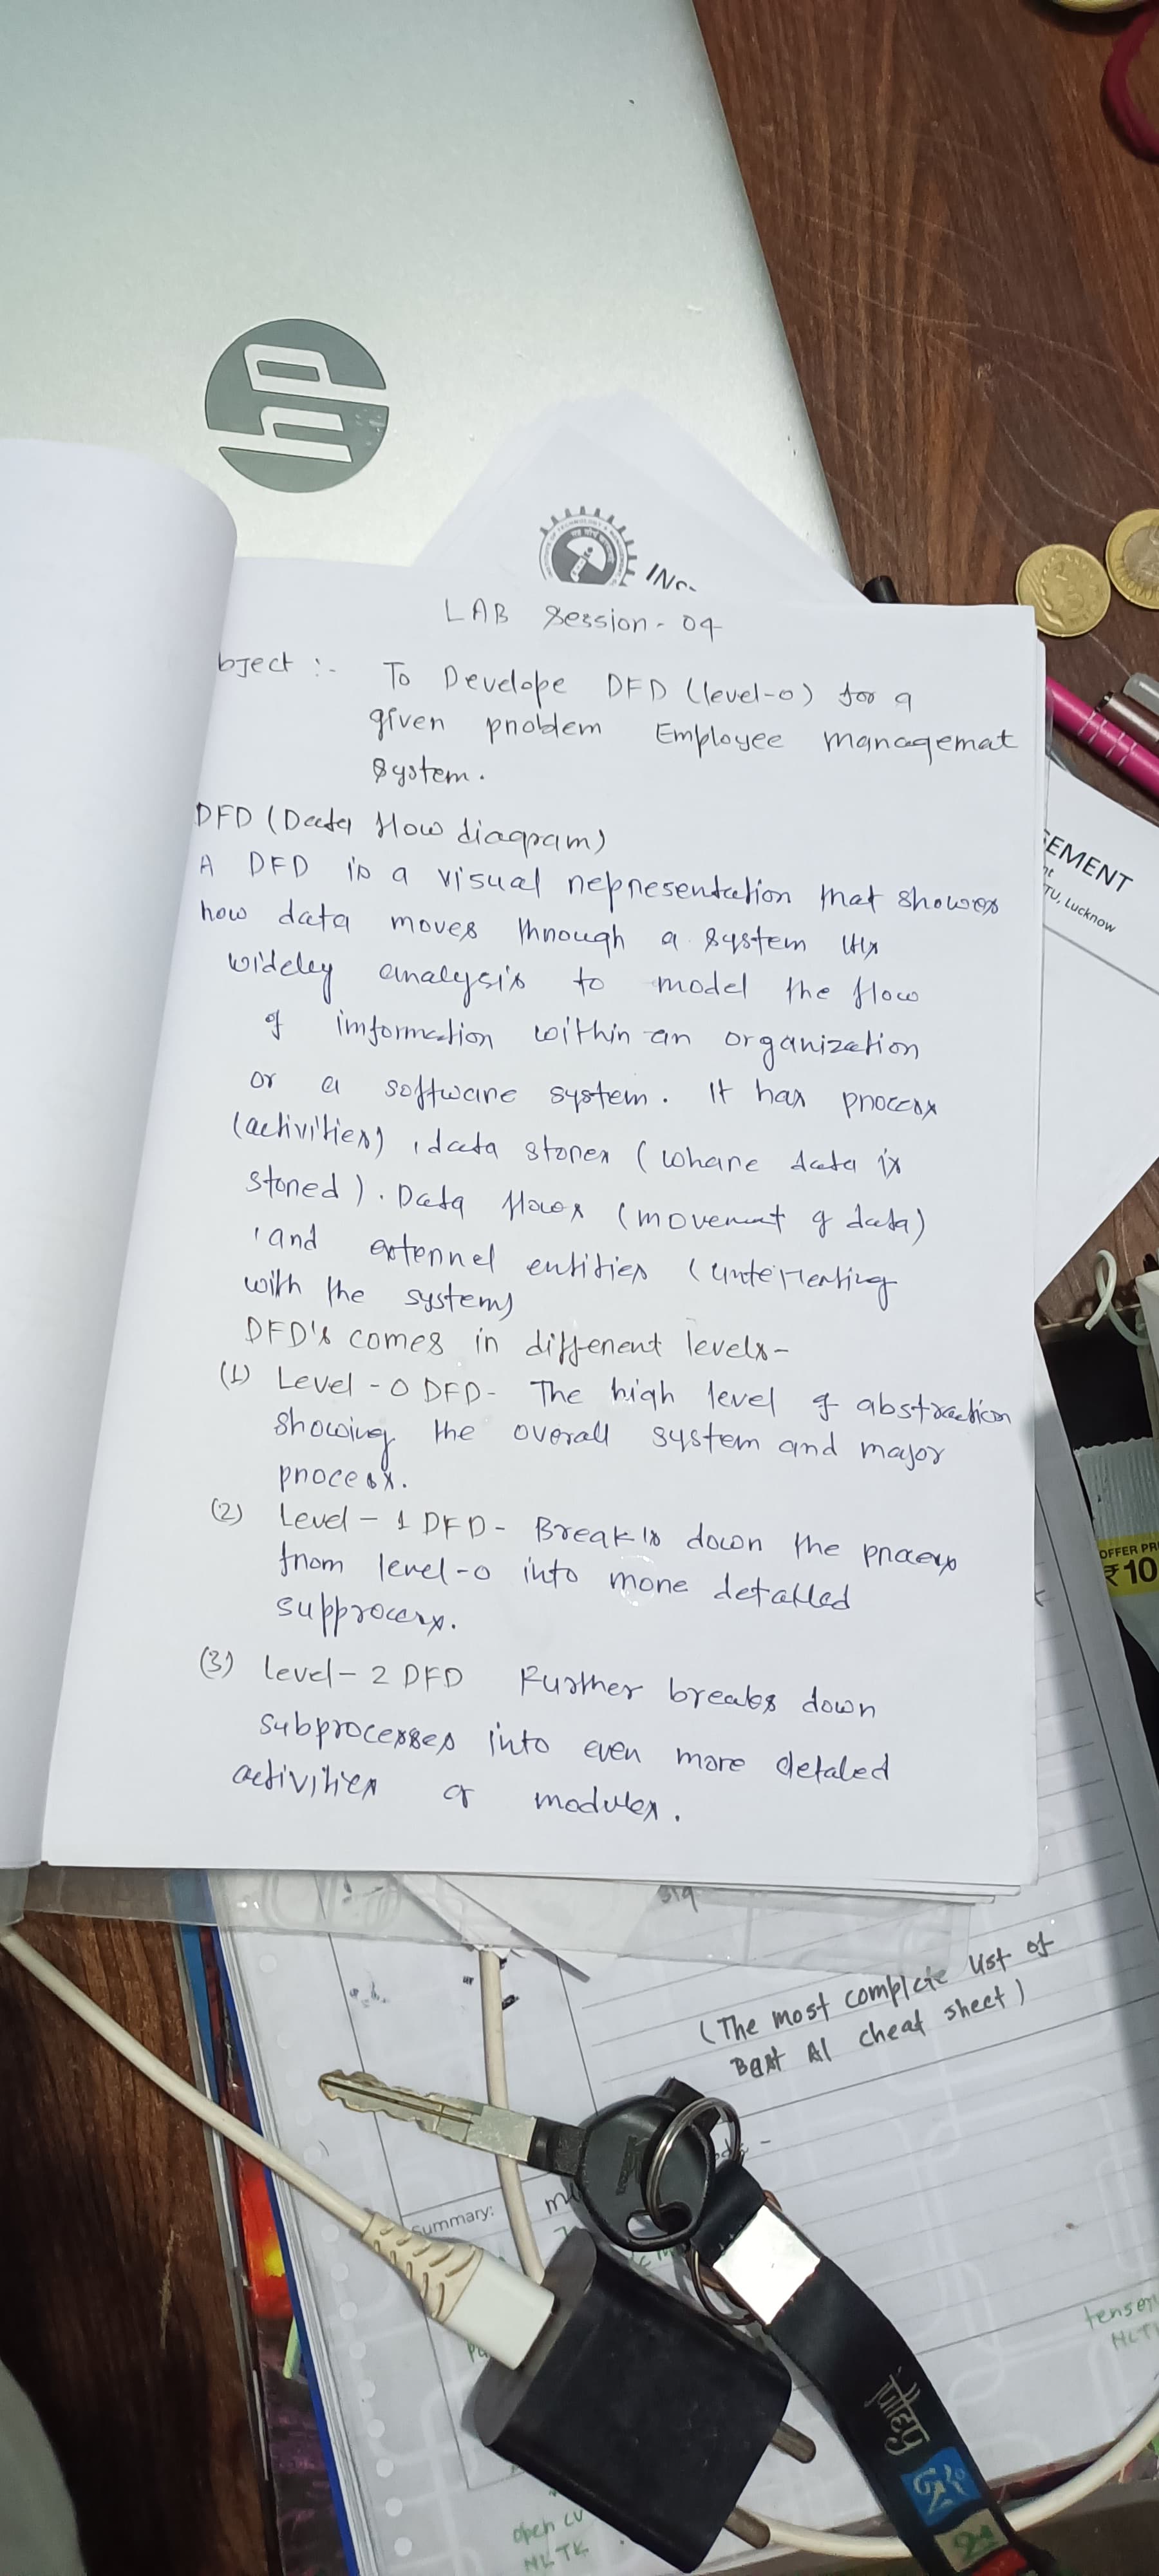 hp
INS
LAB Session - 04
bject :- To Develope DFD (level-0) for a
given problem Employee managemat
System.
DFD (Data flow diagram)
A DFD is a visual representation that shows
how data moves through a system
widely analysis to model the flow
of information within an organization
or a software system. It has process
(activities), data stores (whare data is
stored). Data flows (movemt of data)
, and externel entities (interrenting
with the system)
DFD's comes in different levels-
(1) Level - 0 DFD - The high level of abstraction
showing the overall system and major
process.
(2) Level - 1 DFD - Break's down the process
from level-0 into more detailed
supprocess.
(3) level - 2 DFD Further breaks down
subprocesses into even more detaled
activities or modules.
EMENT
TU, Lucknow
OFFER PRI
₹10
(The most complete list of
Best AI cheat sheet)
Summary:
open CV
NLTK